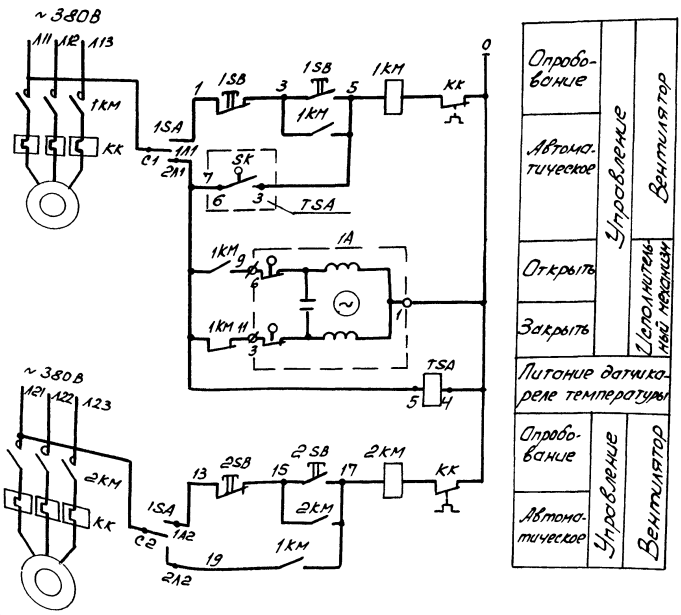 ~ 380В
Л11 Л12 Л13
1КМ
КК
1SA
C1
1Л1
2Л1
1
1SB
3
1SB
5
1КМ
КК
0
1КМ
7
SK
6
3
TSA
1А
1КМ
9
6
1КМ
11
3
~
1
TSA
5
4
~ 380В
Л21 Л22 Л23
2КМ
КК
1SA
C2
1Л2
2Л2
13
2SB
15
2SB
17
2КМ
КК
2КМ
19
1КМ
Опробо-
вание
Автома-
тическое
Управление
Вентилятор
Открыть
Закрыть
Исполнитель-
ный механизм
Питание датчика-
реле температуры
Опробо-
вание
Автома-
тическое
Управление
Вентилятор